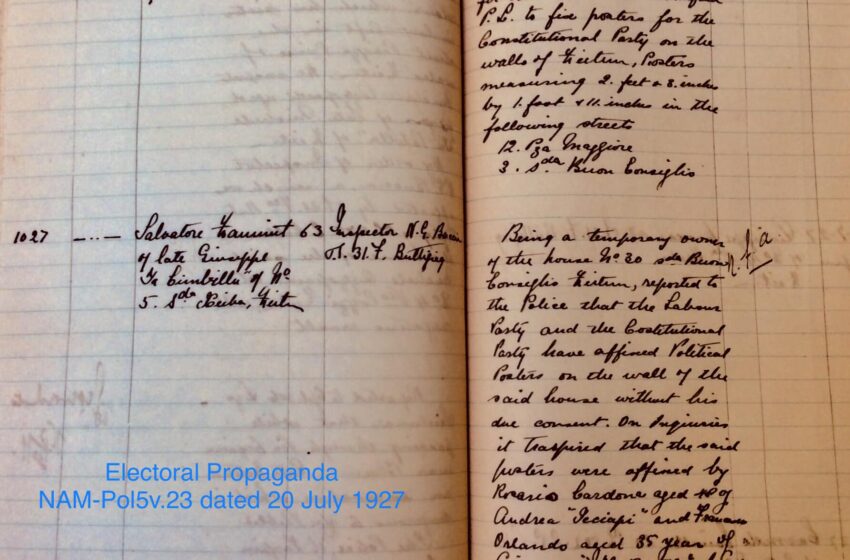 P.L. to fix posters for the
Constitutional Party on the
walls of Zeitun, Posters
measuring 2. feet & 8. inches
by 1. foot & 11. inches in the
following streets
12. Pza Maggiore
3. Sda Buon Consiglio
1027 —..— Salvatore Zammit 63 Inspector N.G.
of late Giuseppe P.S. 31. F. Buttigieg
of No
5. Sda Zeitun
Being a temporary owner
of the house No 30 sda Buon
Consiglio Zeitun, reported to
the Police that the Labour
Party and the Costitutional
Party have affixed Political
Posters on the wall of the
said house without his
due consent. On Inquiries
it traspired that the said
posters were affixed by
Rosario Cardona aged 18 of
Andrea and
Orlando aged 35 year of
Electoral Propaganda
NAM-Pol5v.23 dated 20 July 1927